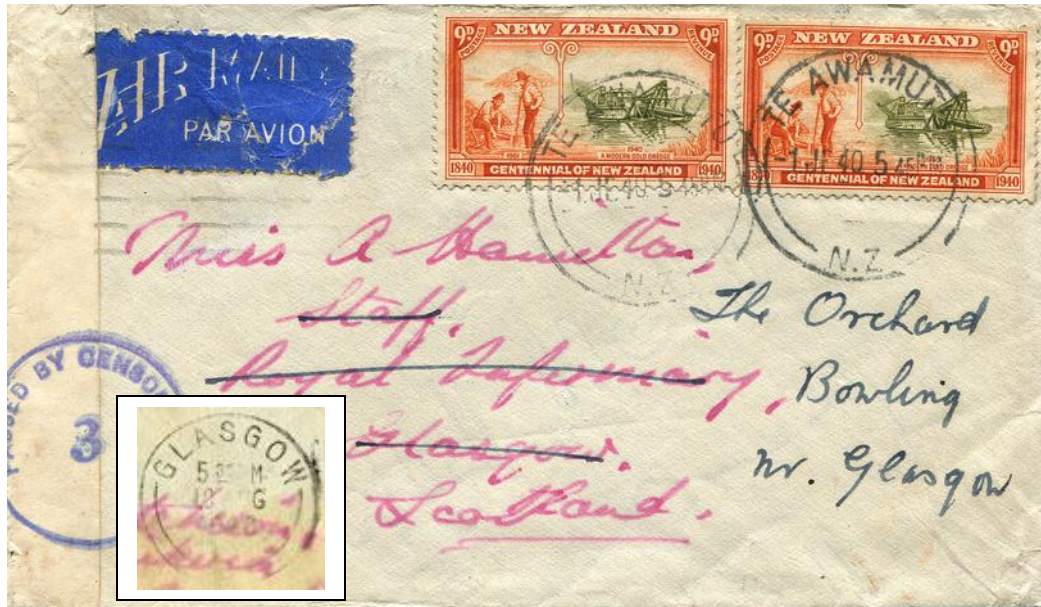 AIR MAIL
PAR AVION
9D NEW ZEALAND 9D
POSTAGE REVENUE
1940
A MODERN GOLD DREDGE
1840 CENTENNIAL OF NEW ZEALAND 1940
9D NEW ZEALAND 9D
POSTAGE REVENUE
1840 CENTENNIAL OF NEW ZEALAND 1940
TE AWAMUTU
-1 JL 40
N.Z
TE AWAMUTU
-1 JL 40 5
N.Z
Miss A Hamilton,
Staff,
Royal Infirmary,
Glasgow.
Scotland.
The Orchard
Bowling
nr. Glasgow
PASSED BY CENSOR
3
GLASGOW